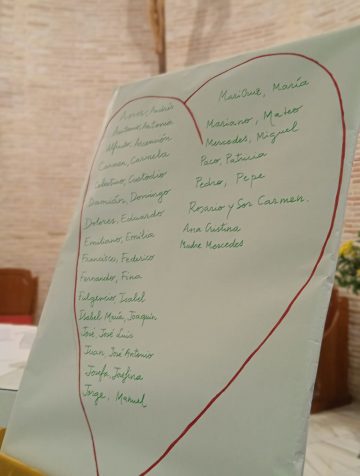 Amor, Andrés
Antonio, Antonia
Alfredo, Ascensión
Carmen, Carmela
Celestino, Custodio
Damián, Domingo
Dolores, Eduardo
Emiliano, Emilia
Francisca, Federico
Fernando, Fina
Fulgencio, Isabel
Isabel María, Joaquín
José, José Luis
Juan, José Antonio
Josefa, Josefina
Jorge, Manuel
MariCruz, María
Mariano, Mateo
Mercedes, Miguel
Paco, Patricia
Pedro, Pepe
Rosario y Sor Carmen.
Ana Cristina
Madre Mercedes